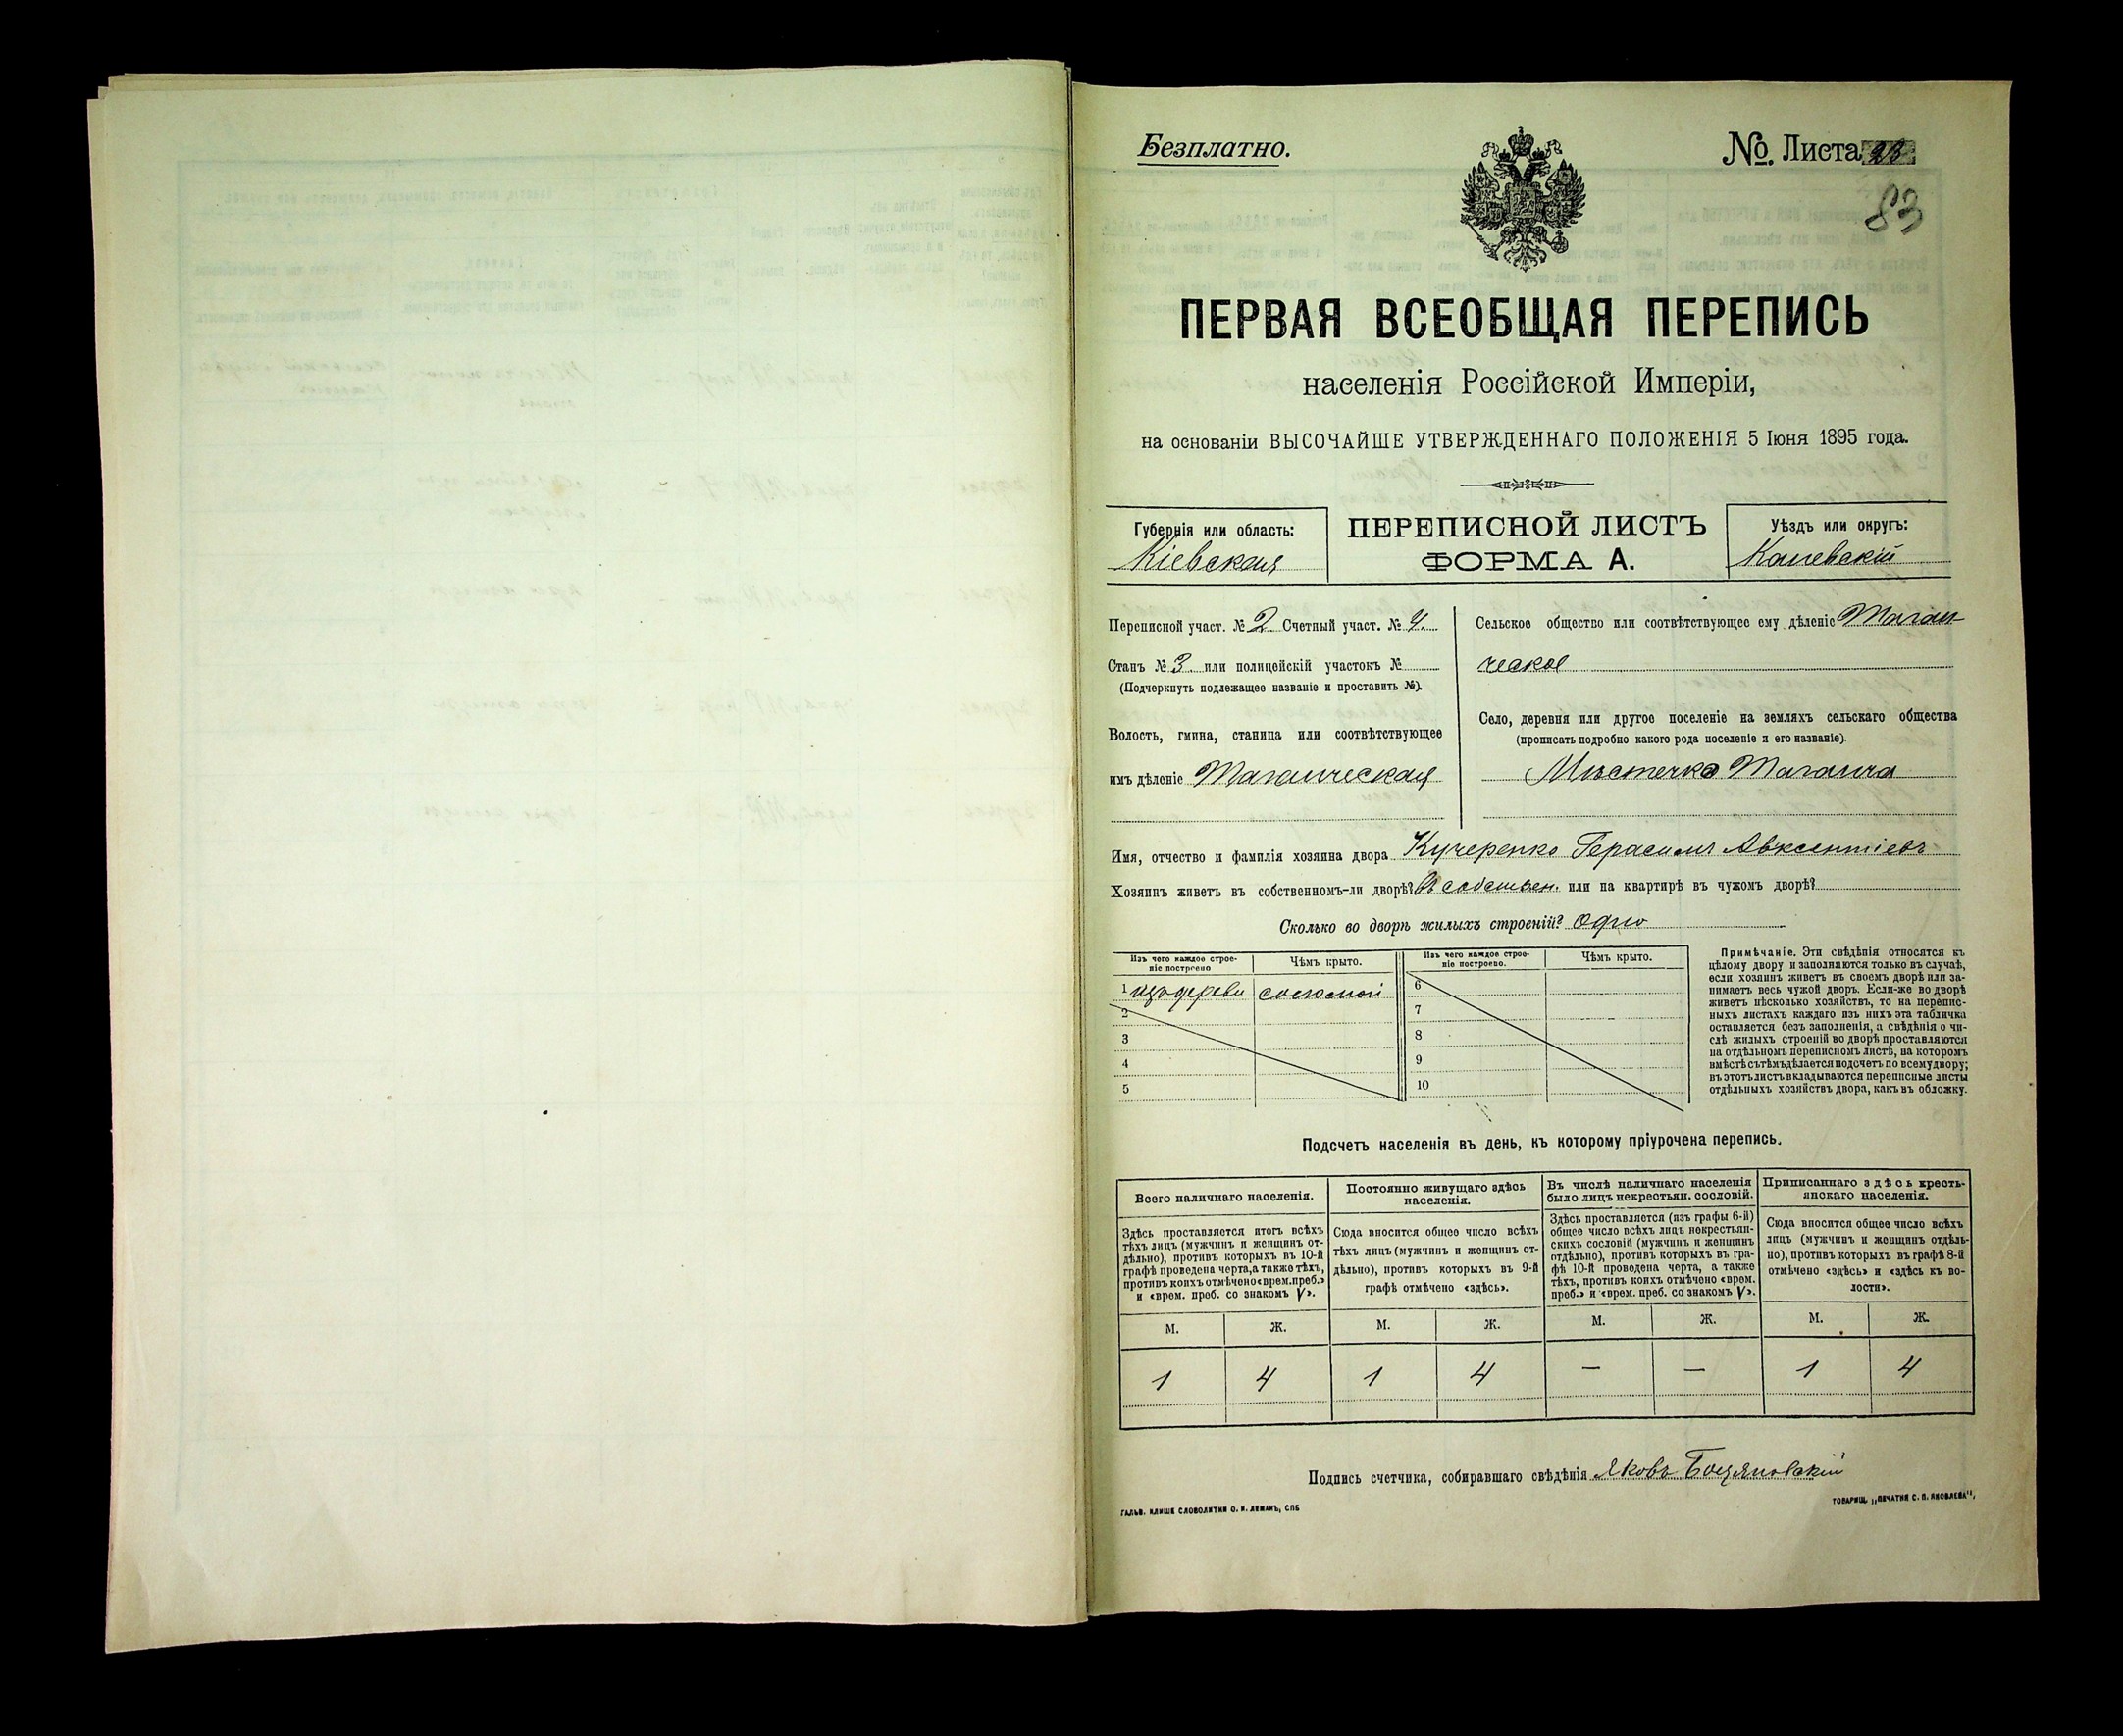 Безплатно.
№. Листа 23
83
ПЕРВАЯ ВСЕОБЩАЯ ПЕРЕПИСЬ
населенія Россійской Имперіи,
на основаніи ВЫСОЧАЙШЕ УТВЕРЖДЕННАГО ПОЛОЖЕНІЯ 5 Іюня 1895 года.
Губернія или область:
Кіевская
ПЕРЕПИСНОЙ ЛИСТЪ
ФОРМА А.
Уѣздъ или округъ:
Каневскій
Переписной участ. № 2 Счетный участ. № 4.
Станъ № 3. или полицейскій участокъ №
(Подчеркнуть подлежащее названіе и проставить №).
Волость, гмина, станица или соотвѣтствующее
имъ дѣленіе Таганческая
Сельское общество или соотвѣтствующее ему дѣленіе Таган-
ческое
Село, деревня или другое поселеніе на земляхъ сельскаго общества
(прописать подробно какого рода поселеніе и его названіе).
Мѣстечко Таганча
Имя, отчество и фамилія хозяина двора Кучеренко Герасимъ Авксентіевъ
Хозяинъ живетъ въ собственномъ-ли дворѣ? Въ собствен. или на квартирѣ въ чужомъ дворѣ?
Сколько во дворѣ жилыхъ строеній? Одно
Изъ чего каждое строе-
ніе построено
Чѣмъ крыто.
Изъ чего каждое строе-
ніе построено.
Чѣмъ крыто.
1 изъ дерева соломой
2
3
4
5
6
7
8
9
10
Примѣчаніе. Эти свѣдѣнія относятся къ
цѣлому двору и заполняются только въ случаѣ,
если хозяинъ живетъ въ своемъ дворѣ или за-
нимаетъ весь чужой дворъ. Если-же во дворѣ
живетъ нѣсколько хозяйствъ, то на перепис-
ныхъ листахъ каждаго изъ нихъ эта табличка
оставляется безъ заполненія, а свѣдѣнія о чи-
слѣ жилыхъ строеній во дворѣ проставляются
на отдѣльномъ переписномъ листѣ, на которомъ
вмѣстѣ съ тѣмъ дѣлается подсчетъ по всему двору;
въ этотъ листъ вкладываются переписные листы
отдѣльныхъ хозяйствъ двора, какъ въ обложку.
Подсчетъ населенія въ день, къ которому пріурочена перепись.
Всего наличнаго населенія.
Здѣсь проставляется итогъ всѣхъ
тѣхъ лицъ (мужчинъ и женщинъ от-
дѣльно), противъ которыхъ въ 10-й
графѣ проведена черта, а также тѣхъ,
противъ коихъ отмѣчено «врем. преб.»
и «врем. преб. со знакомъ V».
Постоянно живущаго здѣсь
населенія.
Сюда вносится общее число всѣхъ
тѣхъ лицъ (мужчинъ и женщинъ от-
дѣльно), противъ которыхъ въ 9-й
графѣ отмѣчено «здѣсь».
Въ числѣ наличнаго населенія
было лицъ некрестьян. сословій.
Здѣсь проставляется (изъ графы 6-й)
общее число всѣхъ лицъ некрестьян-
скихъ сословій (мужчинъ и женщинъ
отдѣльно), противъ которыхъ въ гра-
фѣ 10-й проведена черта, а также
тѣхъ, противъ коихъ отмѣчено «врем.
преб.» и «врем. преб. со знакомъ V».
Приписаннаго здѣсь кресть-
янскаго населенія.
Сюда вносится общее число всѣхъ
лицъ (мужчинъ и женщинъ отдѣль-
но), противъ которыхъ въ графѣ 8-й
отмѣчено «здѣсь» и «здѣсь къ во-
лости».
М. Ж. М. Ж. М. Ж. М. Ж.
1 4 1 4 — — 1 4
Подпись счетчика, собиравшаго свѣдѣнія Яковъ Боцяновскій
ГАЛЬВ. КЛИШЕ СЛОВОЛИТНИ О. И. ЛЕМАНЪ, СПБ
ТОВАРИЩ. „ПЕЧАТНЯ С. П. ЯКОВЛЕВА",